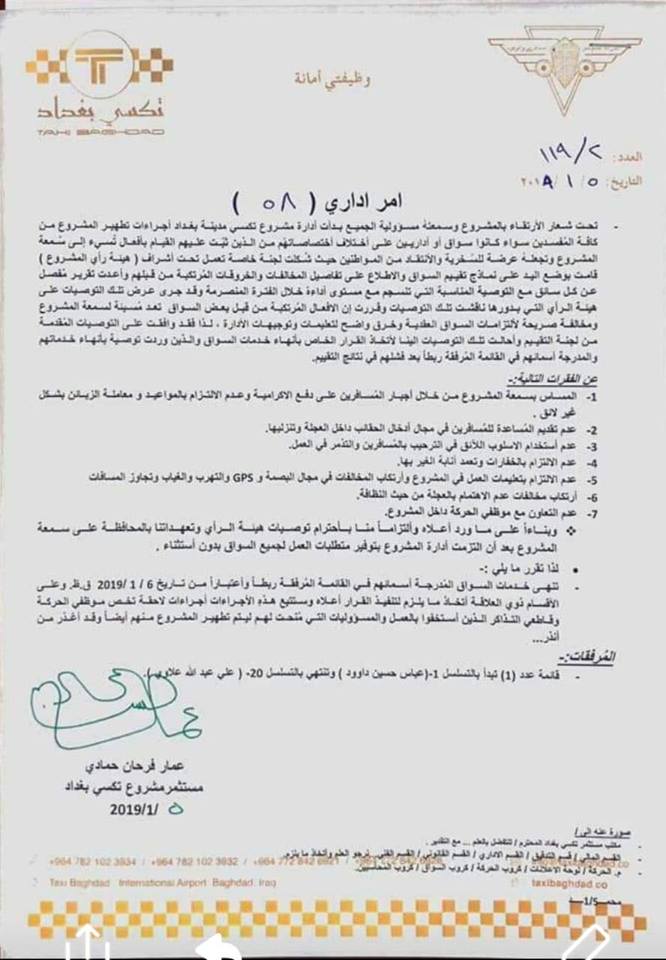 تكسي بغداد
TAXI BAGHDAD
وظيفتي أمانة
العدد: ١١٩/٢
التاريخ: ٢٠١٩/١/٥
امر اداري ( ٥٨ )
- تحت شعار الأرتقاء بالمشروع وسمعتهُ مسؤولية الجميع بدأت أدارة مشروع تكسي مدينة بغداد أجراءات تطهير المشروع من
كافة المفسدين سواء كانوا سواق أو أداريين على أختلاف أختصاصاتهم من الذين ثبت عليهم القيام بأفعال تُسيء إلى سمعة
المشروع وتجعلهُ عرضة للسُخرية والأنتقاد من المواطنين حيث شُكلت لجنة خاصة تعمل تحت أشراف ( هيئة رأي المشروع )
قامت بوضع اليد على نماذج تقييم السواق والاطلاع على تفاصيل المخالفات والخروقات المُرتكبة من قبلهم وأعدت تقرير مُفصل
عن كل سائق مع التوصية المناسبة التي تنسجم مع مستوى أداءهُ خلال الفترة المنصرمة وقد جرى عرض تلك التوصيات على
هيئة الرأي التي بدورها ناقشت تلك التوصيات وقررت إن الأفعال المُرتكبة من قبل بعض السواق تعد مُسيئة لسمعة المشروع
ومخالفة صريحة لألتزامات السواق العقدية وخرق واضح لتعليمات وتوجيهات الأدارة ، لذا فقد وافقت على التوصيات المقدمة
من لجنة التقييم وأحالت تلك التوصيات الينا لأتخاذ القرار الخاص بأنهاء خدمات السواق والذين وردت توصية بأنهاء خدماتهم
والمدرجة أسمائهم في القائمة المُرفقة ربطاً بعد فشلهم في نتائج التقييم.
عن الفقرات التالية:-
1- المساس بسمعة المشروع من خلال أجبار المُسافرين على دفع الاكرامية وعدم الالتزام بالمواعيد و معاملة الزبائن بشكل
غير لائق .
2- عدم تقديم المُساعدة للمُسافرين في مجال أدخال الحقائب داخل العجلة وتنزليها.
3- عدم أستخدام الاسلوب اللائق في الترحيب بالمُسافرين والتذمر في العمل.
4- عدم الالتزام بالخفارات وتعمد أنابة الغير بها.
5- عدم الالتزام بتعليمات العمل في المشروع وأرتكاب المخالفات في مجال البصمة و GPS والتهرب والغياب وتجاوز المسافات
6- أرتكاب مخالفات عدم الاهتمام بالعجلة من حيث النظافة.
7- عدم التعاون مع موظفي الحركة داخل المشروع.
❖ وبناءاً على ما ورد أعلاه وألتزاماً منا بأحترام توصيات هيئة الرأي وتعهداتنا بالمحافظة على سمعة
المشروع بعد أن التزمت أدارة المشروع بتوفير متطلبات العمل لجميع السواق بدون أستثناء .
• لذا تقرر ما يلي :-
- تنهى خدمات السواق المُدرجة أسمائهم في القائمة المُرفقة ربطاً وأعتباراً من تاريخ 6 /1 /2019 ق.ظ. وعلى
الأقسام ذوي العلاقة أتخاذ ما يلزم لتنفيذ القرار أعلاه وستتبع هذهِ الأجراءات أجراءات لاحقة تخص موظفي الحركة
وقاطعي التذاكر الذين أستخفوا بالعمل والمسؤوليات التي مُنحت لهم ليتم تطهير المشروع منهم أيضاً وقد أعذر من
أنذر...
المُرفقات:-
- قائمة عدد (1) تبدأ بالتسلسل 1-(عباس حسين داوود ) وتنتهي بالتسلسل 20- ( علي عبد الله علاوي).
عمار فرحان حمادي
مستثمر مشروع تكسي بغداد
٥ /2019/1
صورة عنه الى /
- مكتب مستثمر تكسي بغداد المحترم / للتفضل بالعلم ... مع التقدير .
- القسم المالي / قسم التدقيق / القسم الاداري / القسم القانوني / القسم الفني.. نرجو العلم وأتخاذ ما يلزم.
- م. الحركة / لوحة الاعلانات / كروب الحركة / كروب السواق / كروب المحاسبين.
+964 782 102 3934 / +964 782 102 3932 /
Taxi Baghdad International Airport. Baghdad, Iraq
taxibaghdad.co